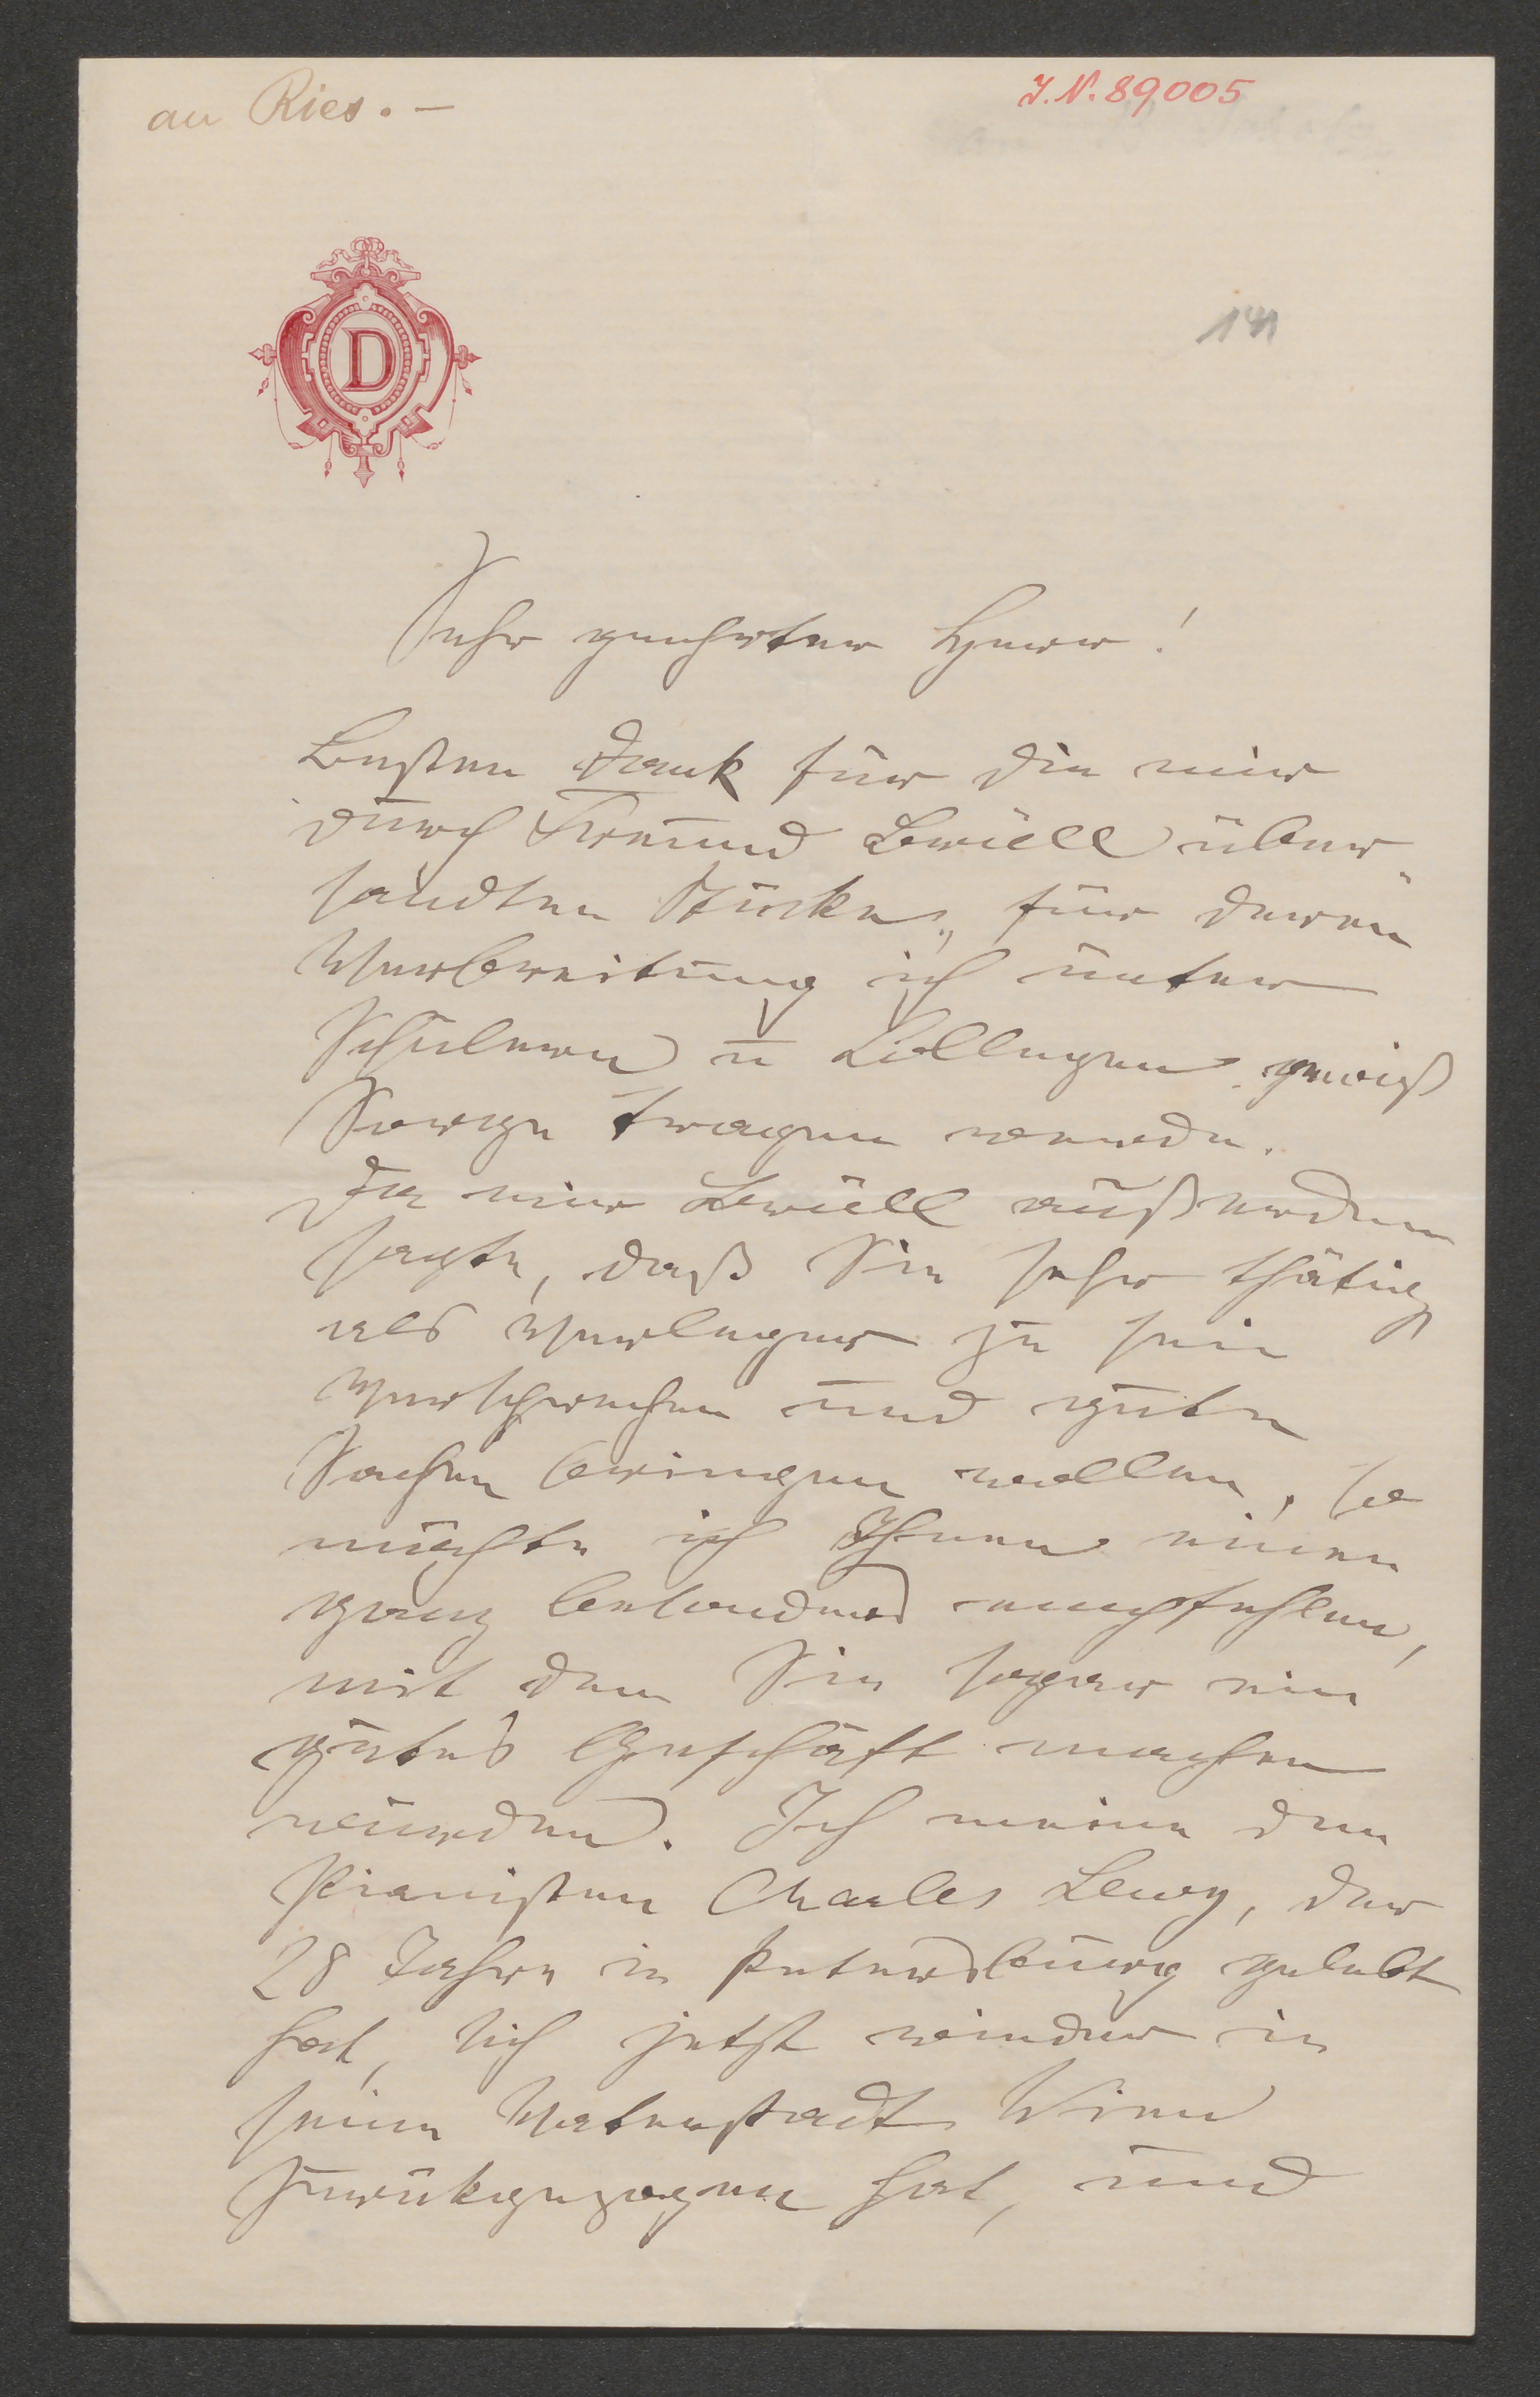 an Ries. —
I. N. 89005
141
D
Sehr geehrter Herr!
Besten Dank für die mir
durch Freund Brüll über-
sandten Stücke, für deren
Verbreitung ich unter
Schülern u Collegen gewiß
Sorge tragen werde.
Da mir Brüll außerdem
sagte, daß Sie sehr thätig
als Verleger zu sein
versprechen und gute
Sachen bringen wollen, so
möchte ich Ihnen einen
ganz besonders empfehlen,
mit dem Sie sogar ein
gutes Geschäft machen
würden. Ich meine den
Pianisten Charles Lewy, der
28 Jahre in Petersburg gelebt
hat, sich jetzt wieder in
seine Vaterstadt Wien
zurükgezogen hat, und